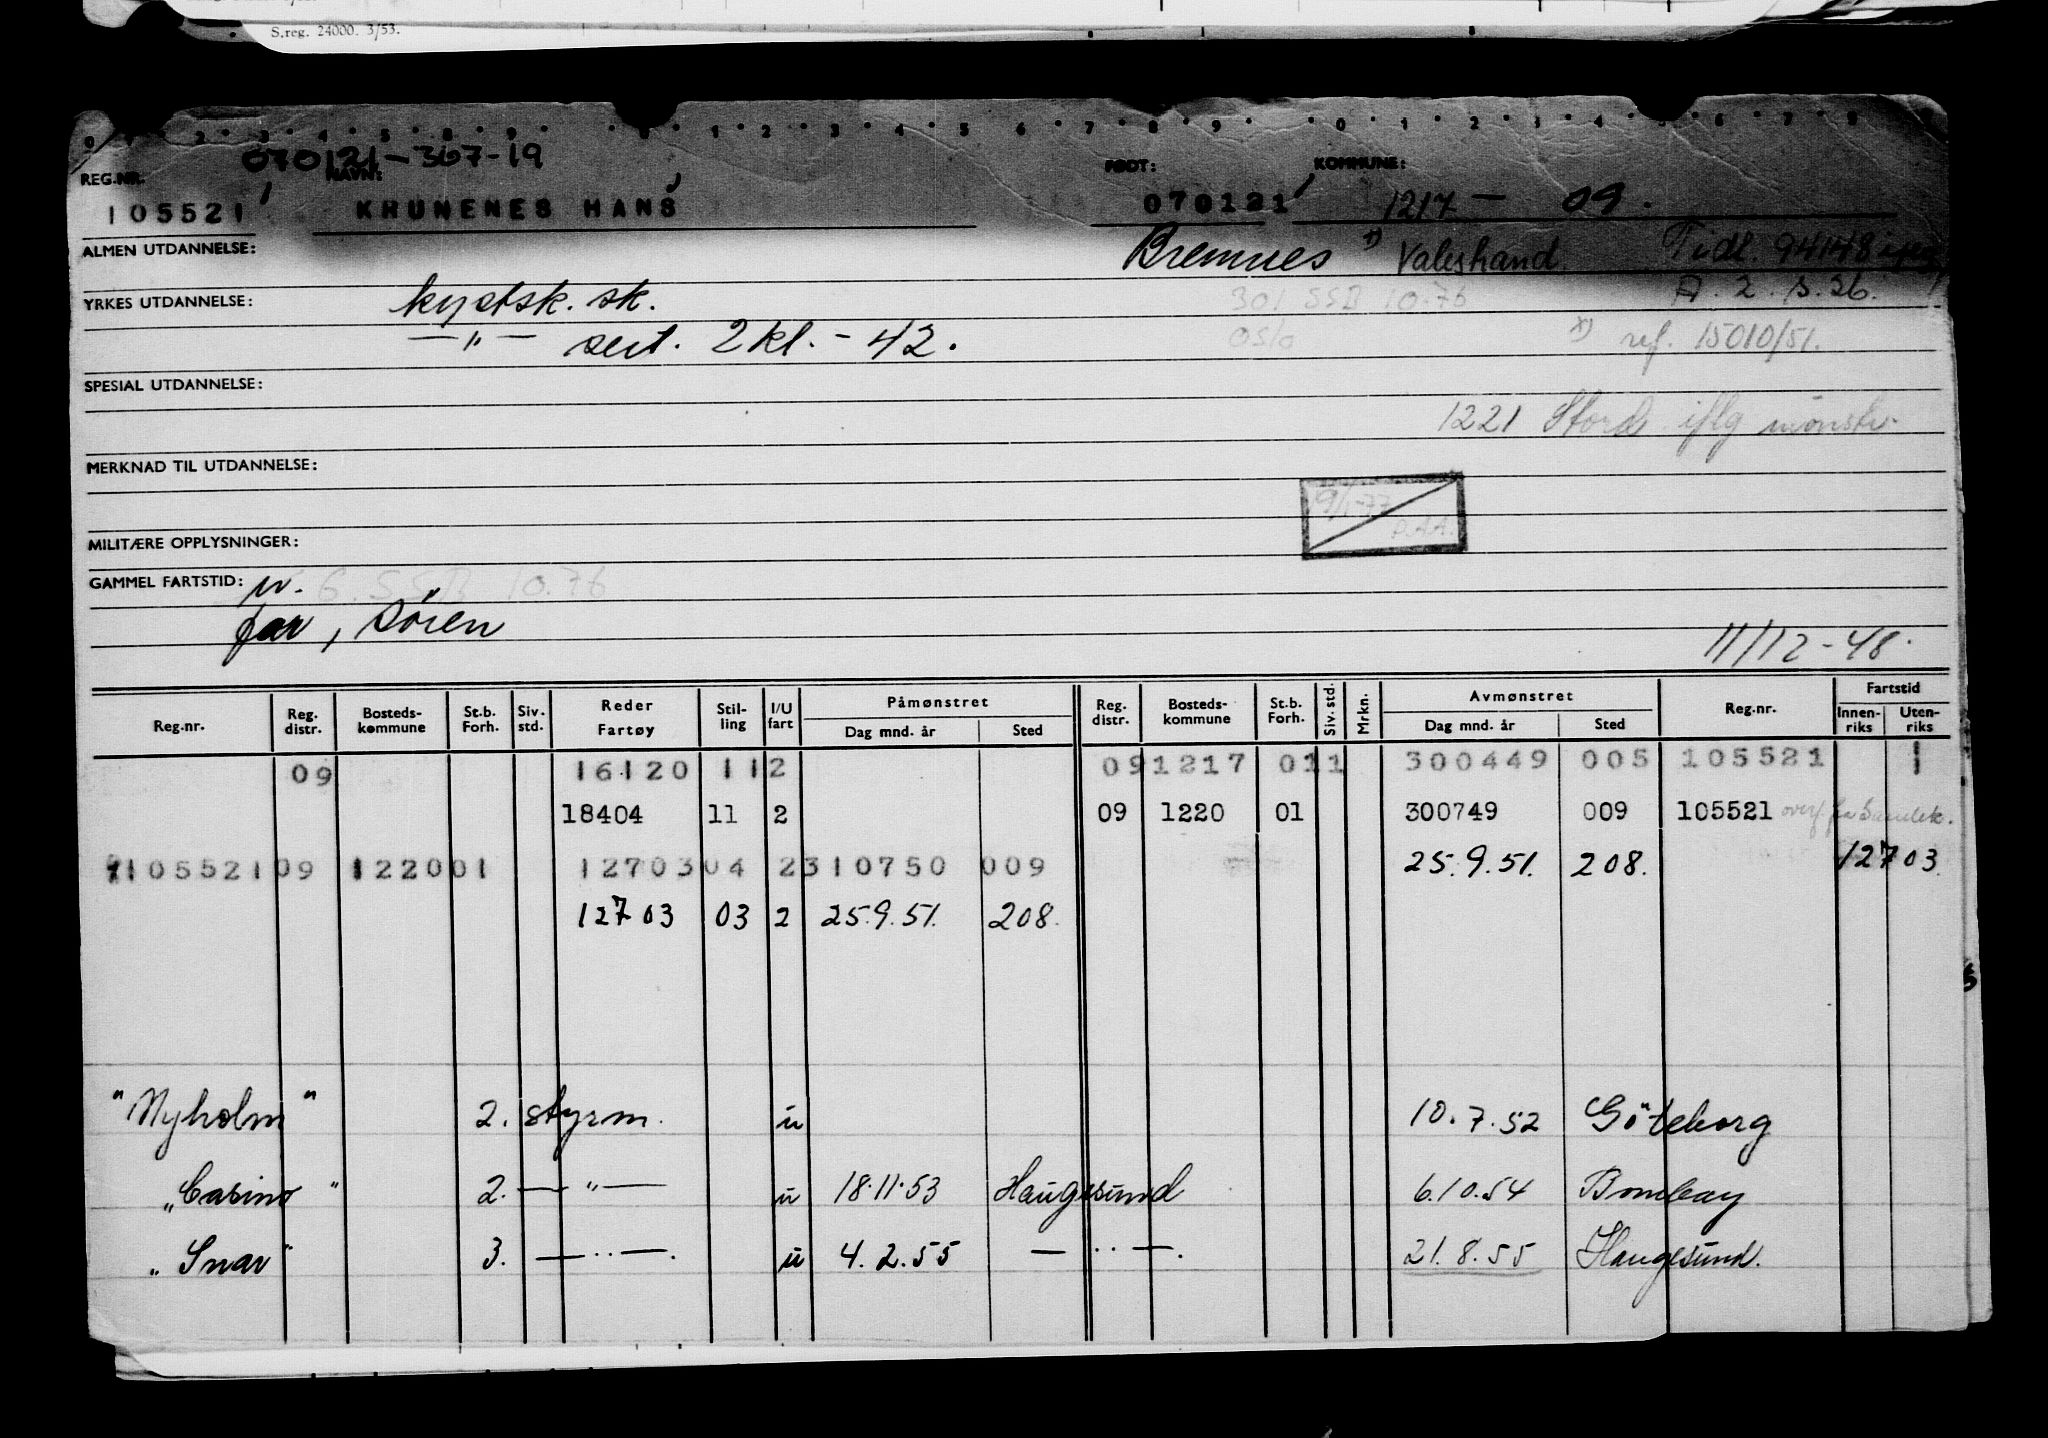 S.reg. 24000. 3/53.
070121-367-19
REG.NR. NAVN: FØDT: KOMMUNE:
105521 KRUNENES HANS 070121 1217 - 09.
ALMEN UTDANNELSE: Bremnes x) Valeshand. Tidl. 94148
YRKES UTDANNELSE: kystsk. sk. 301 SSB 10.76 A. 2. s. 26.
—"— sert. 2 kl. - 42. Oslo x) ref. 15010/51.
SPESIAL UTDANNELSE:
1221 Stord iflg mønstr.
MERKNAD TIL UTDANNELSE:
19/1-77
P.AA.
MILITÆRE OPPLYSNINGER:
GAMMEL FARTSTID: u. 6. SSB 10.76
far, Sören
11/12-48.
Reg.nr. Reg. distr. Bosteds-kommune St.b. Forh. Siv. std. Reder Fartøy Stil-ling I/U fart Påmønstret Dag mnd. år Sted Reg. distr. Bosteds-kommune St.b. Forh. Siv. std. Mrkn. Avmønstret Dag mnd. år Sted Reg.nr. Fartstid Innen-riks Uten-riks
09 16120 11 2 09 1217 01 1 300449 005 105521 1
18404 11 2 09 1220 01 300749 009 105521 overf. fra Samlek.
105521 09 1220 01 12703 04 2 310750 009 25.9.51. 208. 12703
12703 03 2 25.9.51. 208.
"Nyholm" 2. styrm. u 10.7.52 Göteborg
"Casino" 2. —"— u 18.11.53 Haugesund 6.10.54 Bombay
"Snar" 3. —"—. u 4.2.55 —"—. 21.8.55 Haugesund.